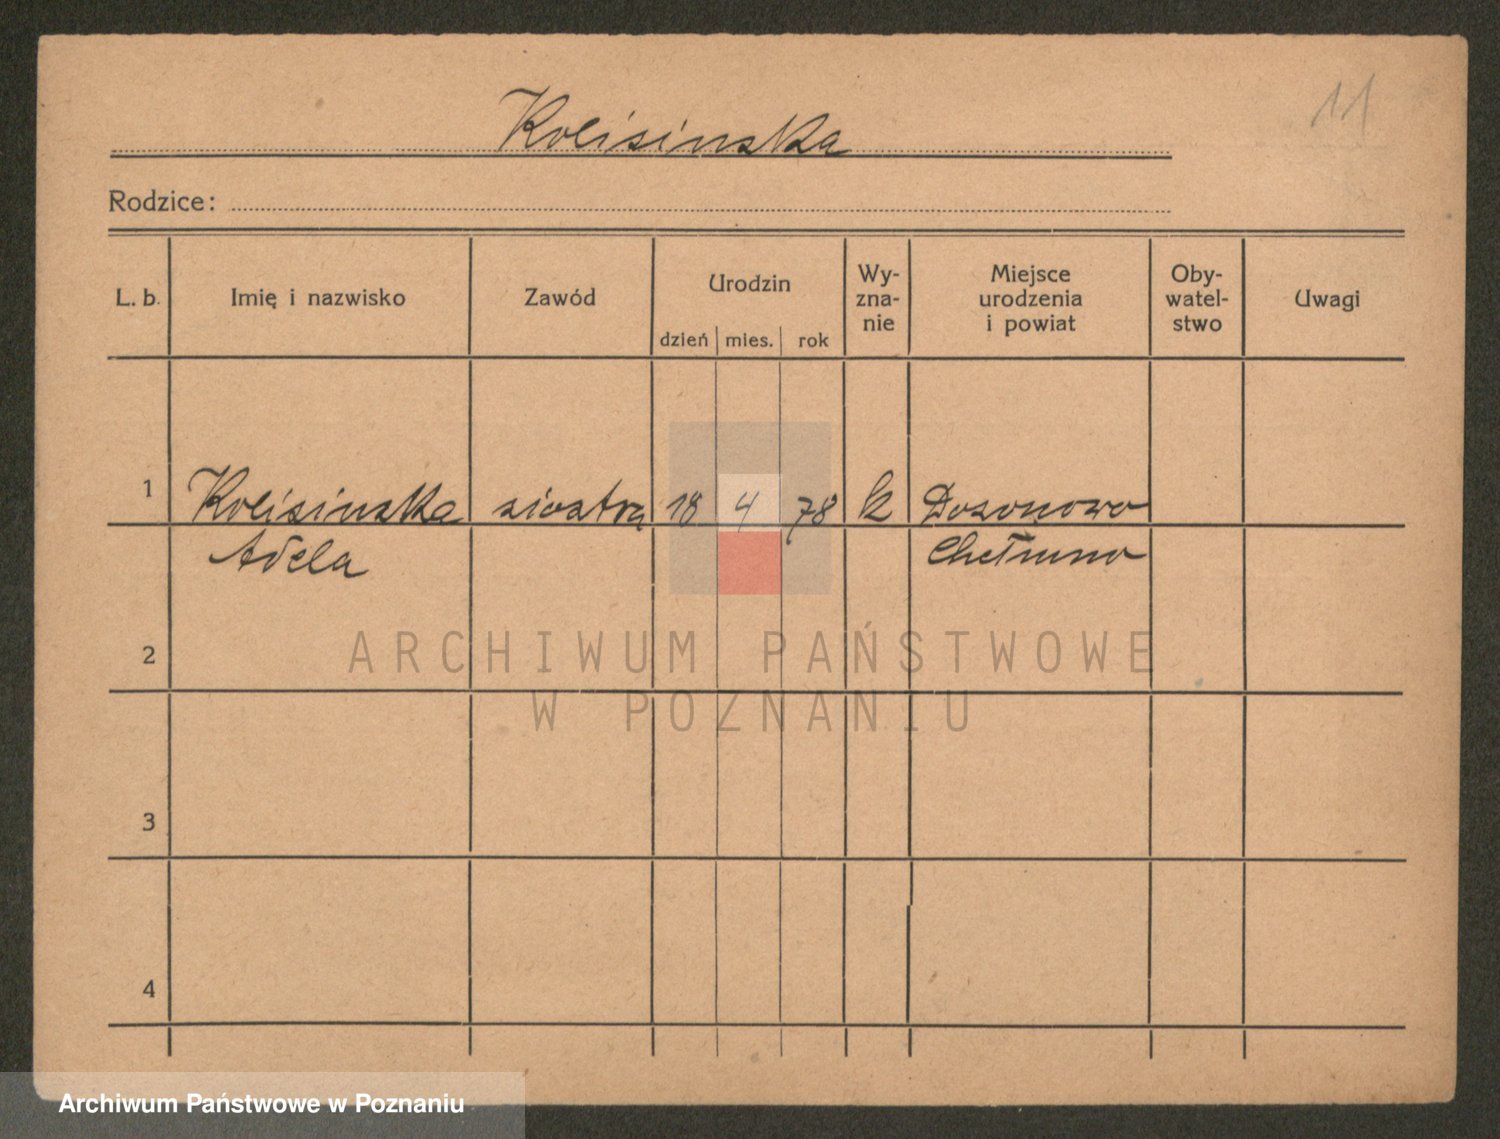 11
Kolisinska
Rodzice:
L. b. Imię i nazwisko Zawód Urodzin dzień mies. rok Wy-zna-nie Miejsce urodzenia i powiat Oby-watel-stwo Uwagi
1 Kolisinska siostra 18 4 78 k
Adela Chełmno
2
ARCHIWUM PAŃSTWOWE
W POZNANIU
3
4
Archiwum Państwowe w Poznaniu